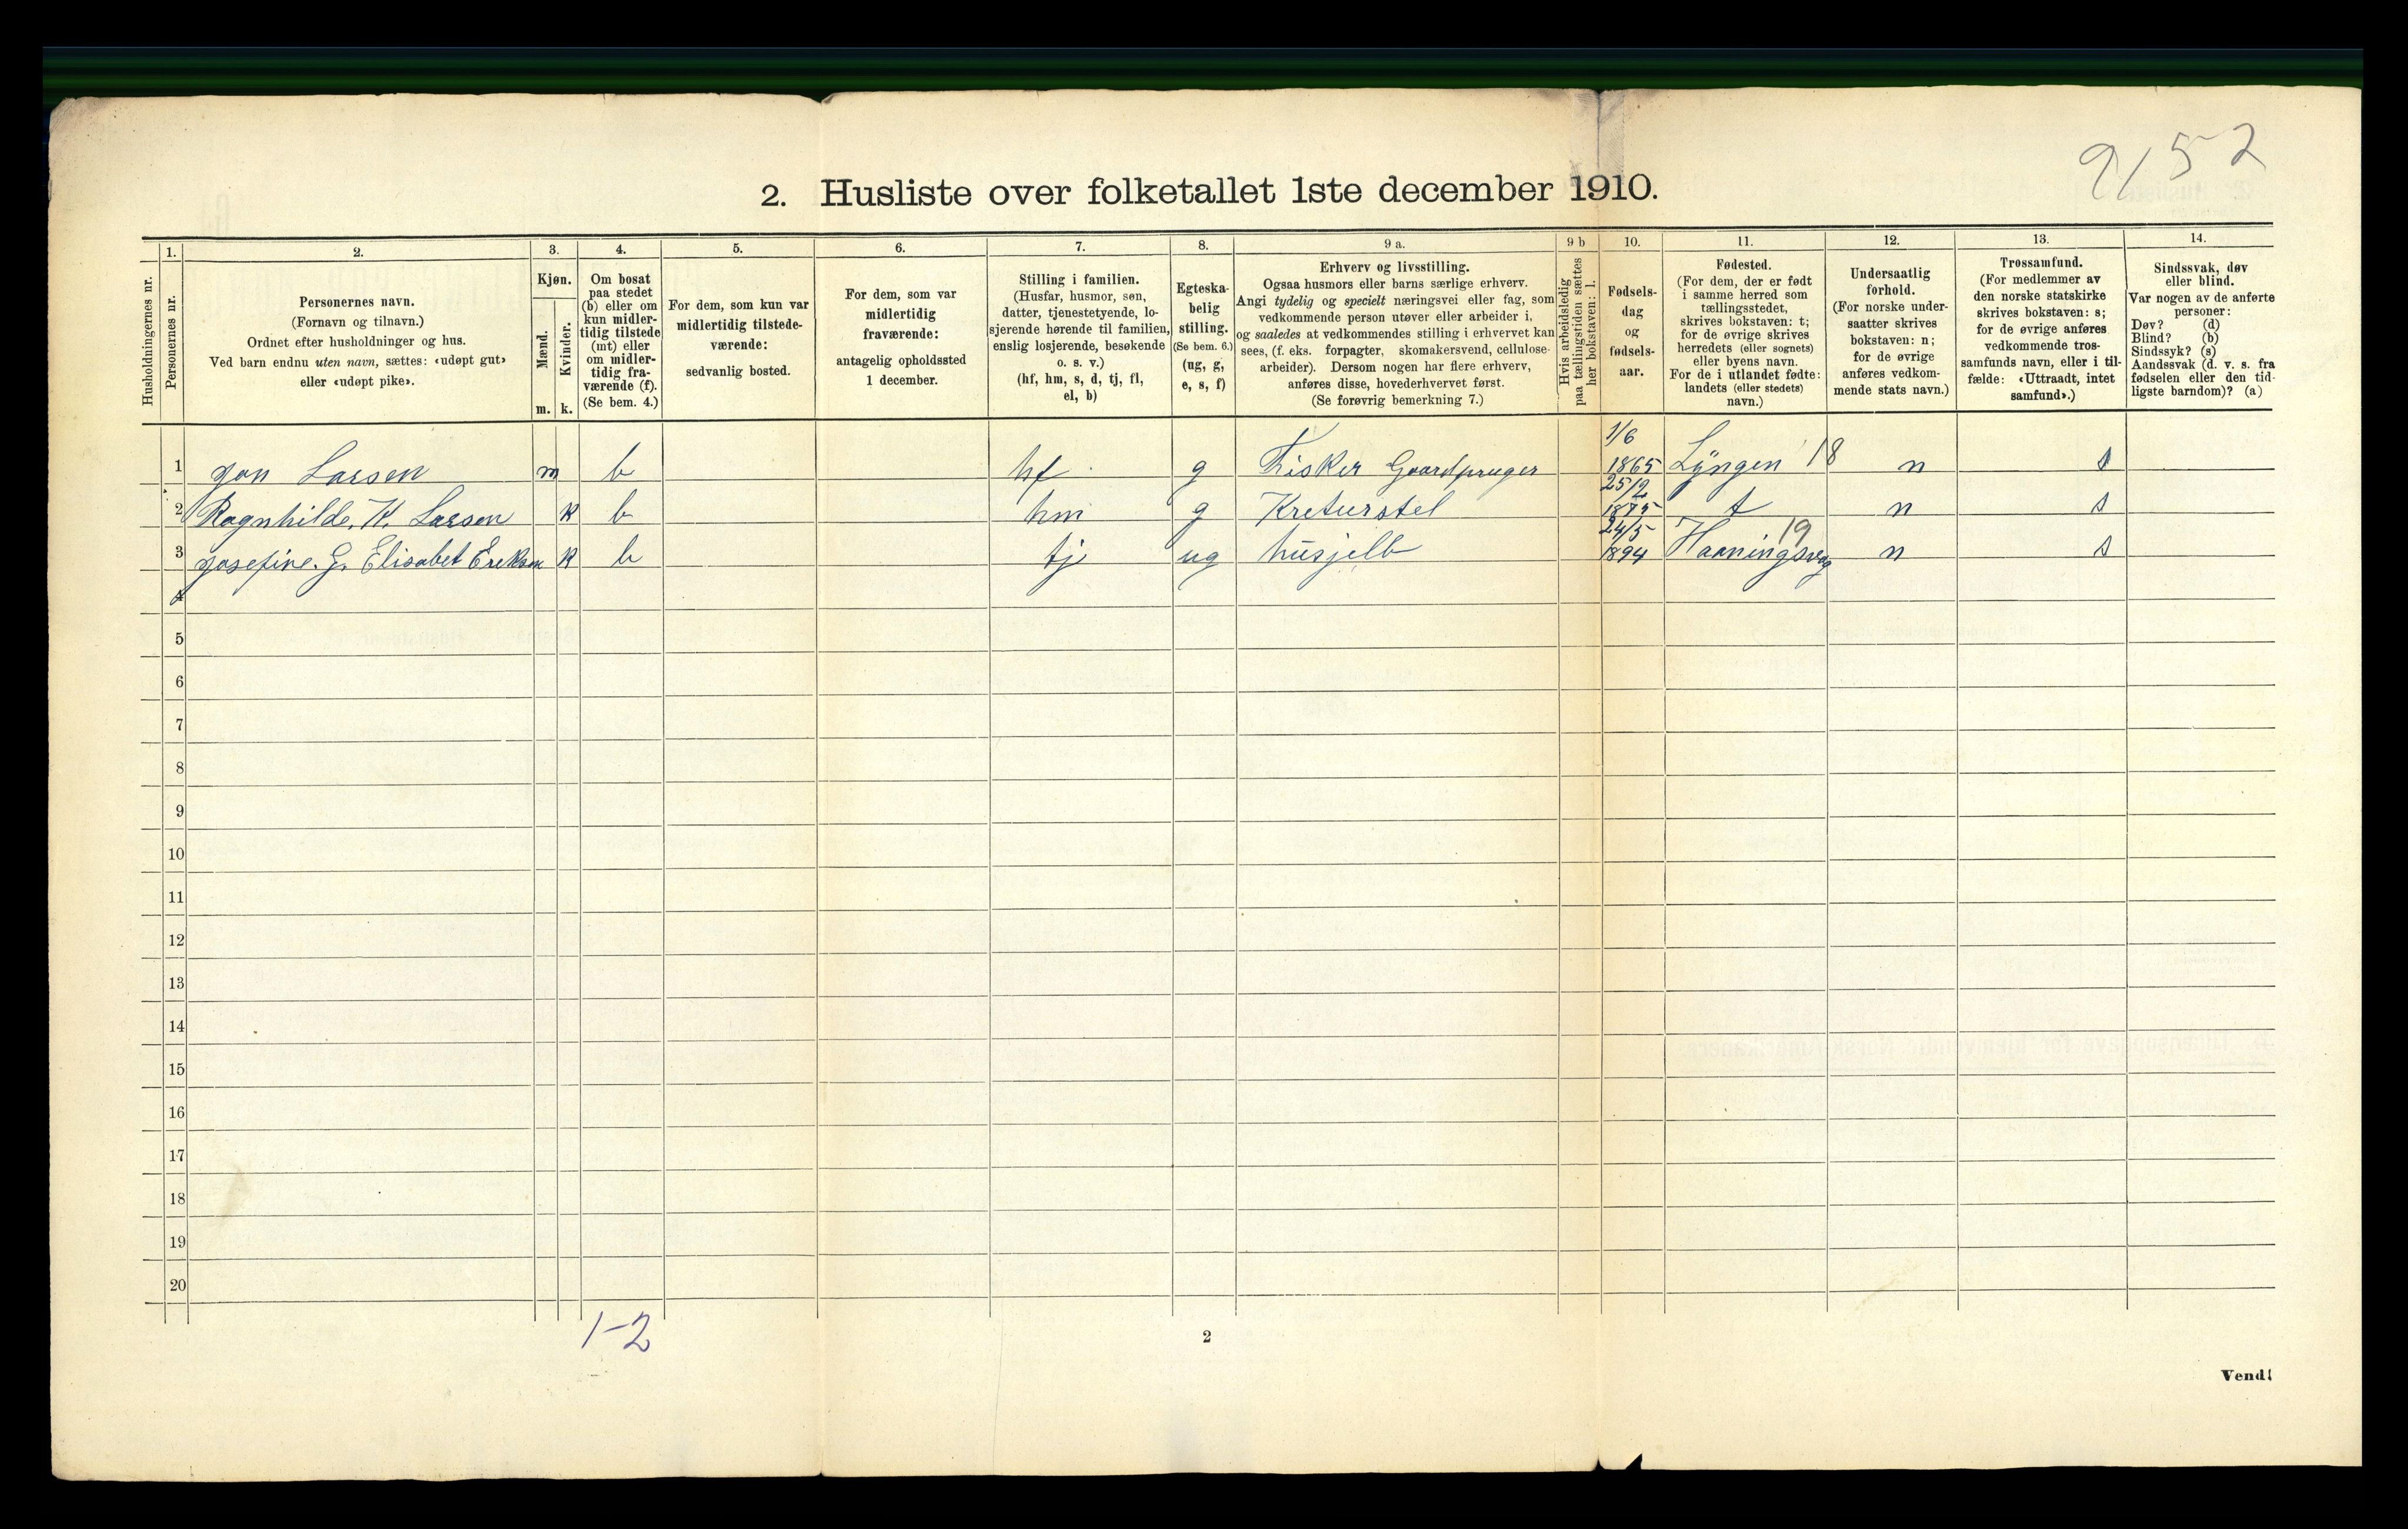 9/52
2. Husliste over folketallet 1ste december 1910.
Husholdningernes nr.
1.
Personernes nr.
2.
Personernes navn.
(Fornavn og tilnavn.)
Ordnet efter husholdninger og hus.
Ved barn endnu uten navn, sættes: «udøpt gut»
eller «udøpt pike».
3.
Kjøn.
Mænd.
m.
Kvinder.
k.
4.
Om bosat
paa stedet
(b) eller om
kun midler-
tidig tilstede
(mt) eller
om midler-
tidig fra-
værende (f).
(Se bem. 4.)
5.
For dem, som kun var
midlertidig tilstede-
værende:
sedvanlig bosted.
6.
For dem, som var
midlertidig
fraværende:
antagelig opholdssted
1 december.
7.
Stilling i familien.
(Husfar, husmor, søn,
datter, tjenestetyende, lo-
sjerende hørende til familien,
enslig losjerende, besøkende
o. s. v.)
(hf, hm, s, d, tj, fl,
el, b)
8.
Egteska-
belig
stilling.
(Se bem. 6.)
(ug, g,
e, s, f)
9 a.
Erhverv og livsstilling.
Ogsaa husmors eller barns særlige erhverv.
Angi tydelig og specielt næringsvei eller fag, som
vedkommende person utøver eller arbeider i,
og saaledes at vedkommendes stilling i erhvervet kan
sees, (f. eks. forpagter, skomakersvend, cellulose-
arbeider). Dersom nogen har flere erhverv,
anføres disse, hovederhvervet først.
(Se forøvrig bemerkning 7.)
9 b
Hvis arbeidsledig
paa tællingstiden sættes
her bokstaven: l.
10.
Fødsels-
dag
og
fødsels-
aar.
11.
Fødested.
(For dem, der er født
i samme herred som
tællingsstedet,
skrives bokstaven: t;
for de øvrige skrives
herredets (eller sognets)
eller byens navn.
For de i utlandet fødte:
landets (eller stedets)
navn.)
12.
Undersaatlig
forhold.
(For norske under-
saatter skrives
bokstaven: n;
for de øvrige
anføres vedkom-
mende stats navn.)
13.
Trossamfund.
(For medlemmer av
den norske statskirke
skrives bokstaven: s;
for de øvrige anføres
vedkommende tros-
samfunds navn, eller i til-
fælde: «Uttraadt, intet
samfund».)
14.
Sindssvak, døv
eller blind.
Var nogen av de anførte
personer:
Døv? (d)
Blind? (b)
Sindssyk? (s)
Aandssvak (d. v. s. fra
fødselen eller den tid-
ligste barndom)? (a)
1 Jon Larsen m b hf g Fisker Gaardpruger 1/6 1865 Lyngen 18 n s
2 Ragnhilde. K. Larsen k b hm g Kreturstel 25/2 1875 t n s
3 Josefine. G. Elisabet Ereksen k b tj ug husjelb 24/5 1894 Haaningsvog 19 n s
4
5
6
7
8
9
10
11
12
13
14
15
16
17
18
19
20
1-2
2
Vend!